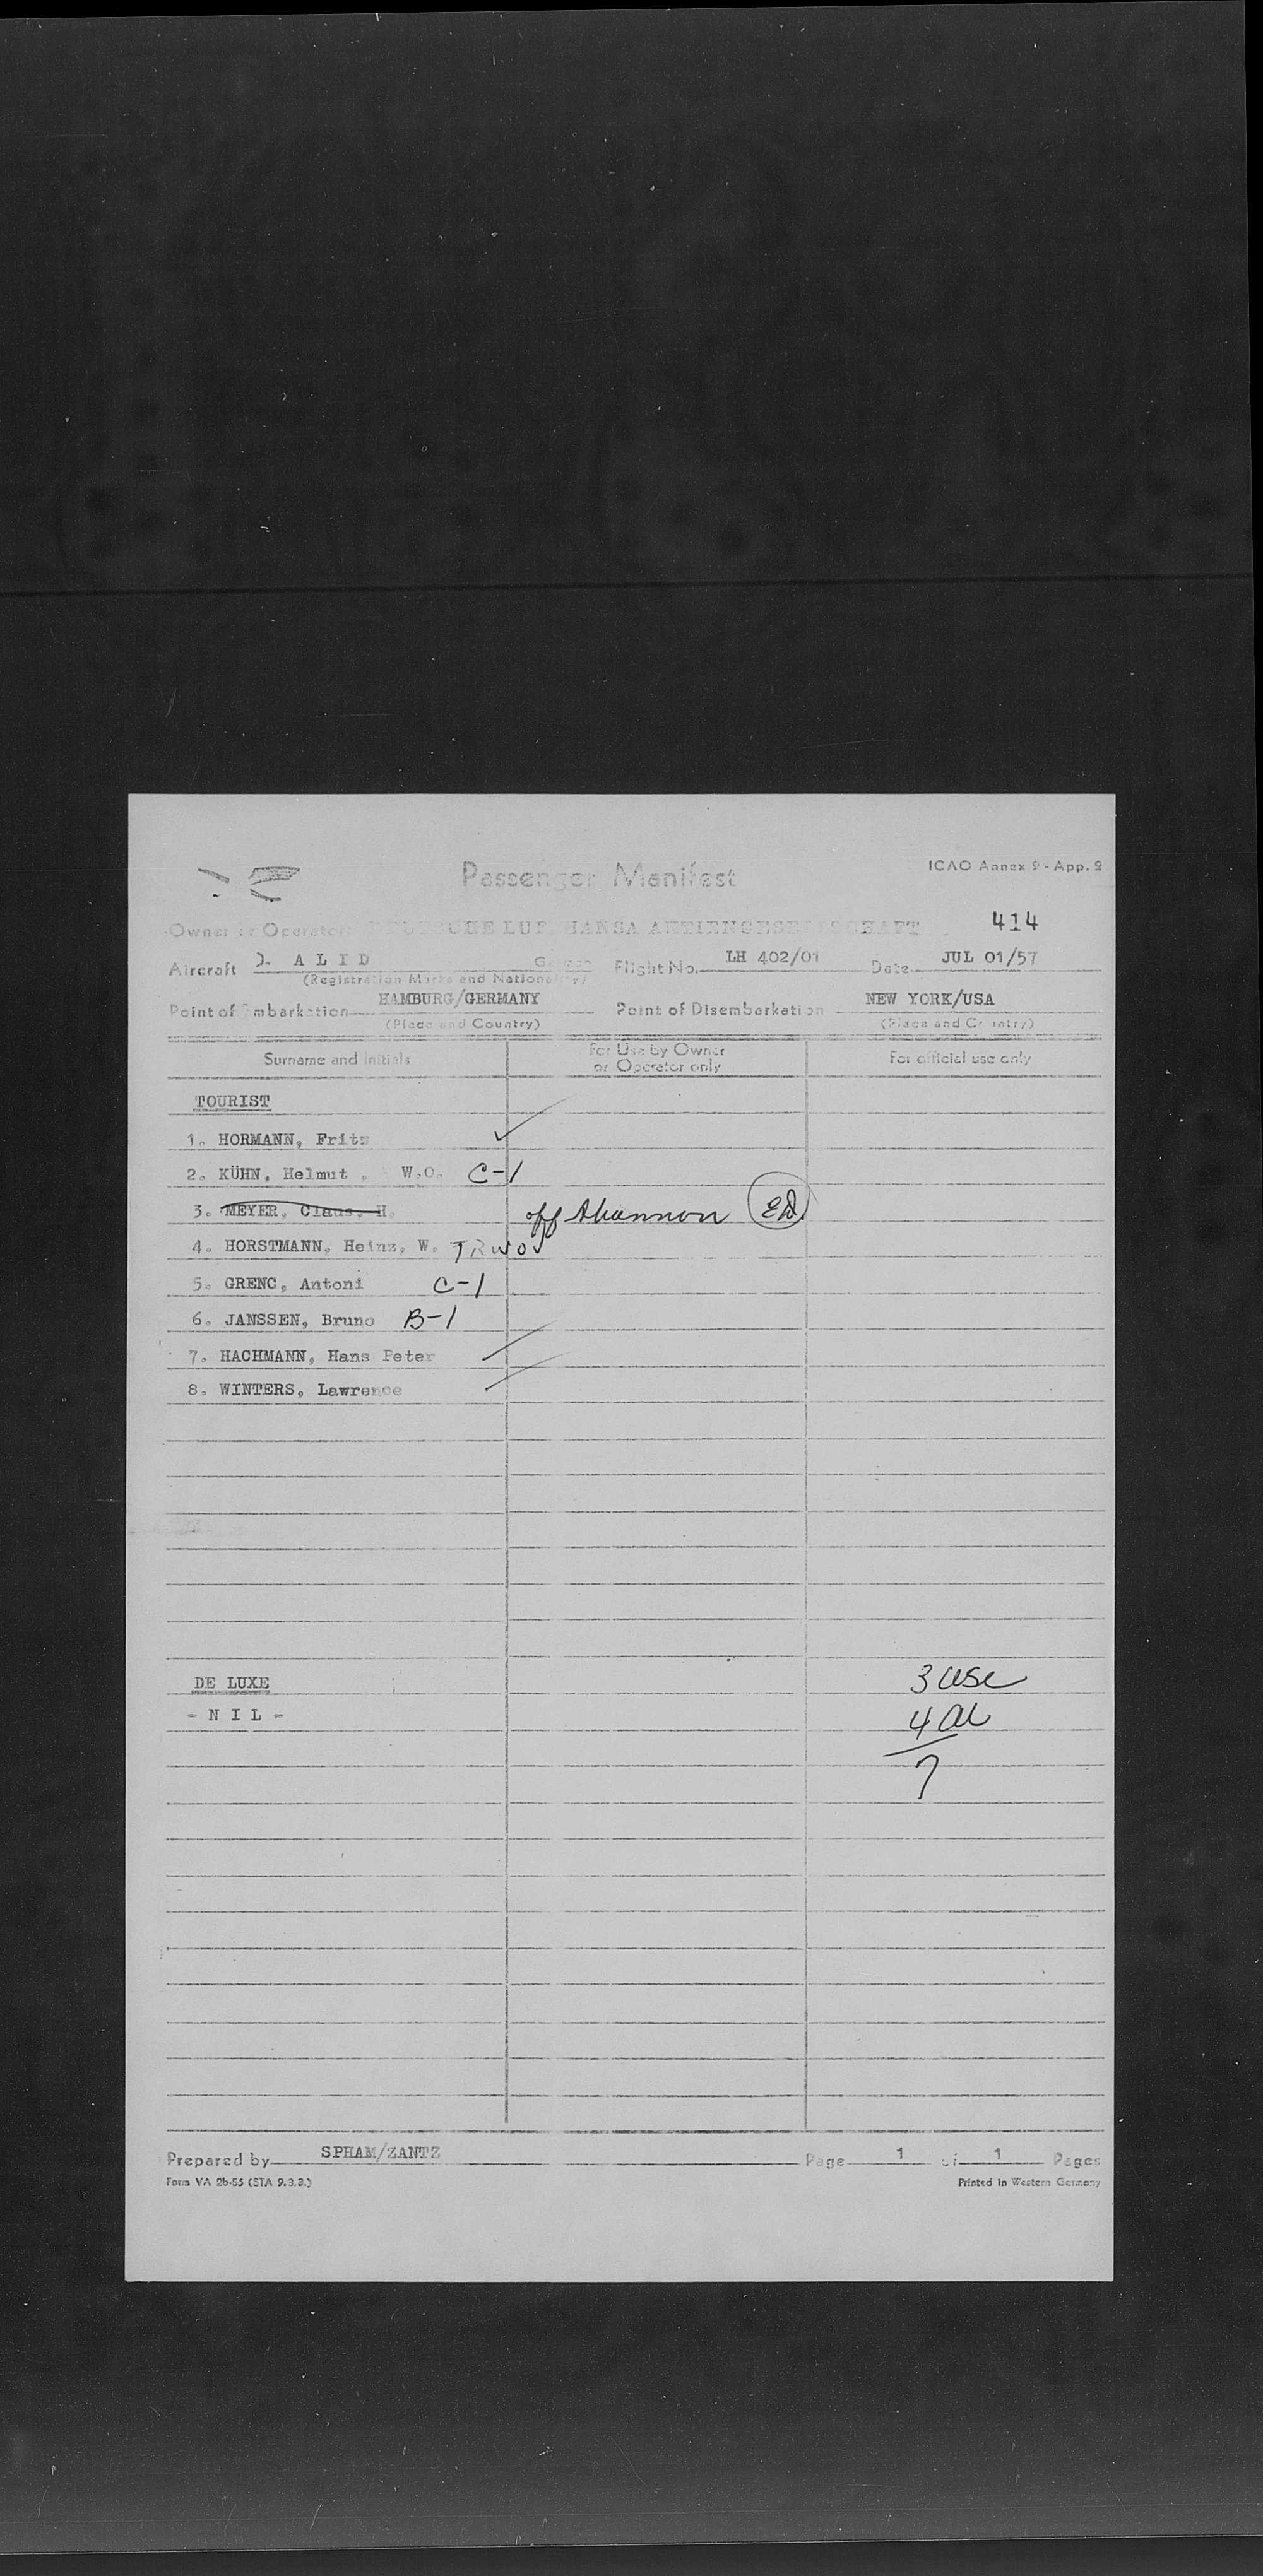 Passenger Manifest
ICAO Annex 9 - App. 2
414
Owner or Operator DEUTSCHE LUFTHANSA AKTIENGESELLSCHAFT
Aircraft D- A L I D Flight No. LH 402/01 Date JUL 01/57
(Registration Marks and Nationality)
Point of Embarkation HAMBURG/GERMANY Point of Disembarkation NEW YORK/USA
(Place and Country) (Place and Country)
Surname and Initials For Use by Owner or Operator only For official use only
TOURIST
1. HORMANN, Fritz
2. KÜHN, Helmut, W.O. C-1
3. MEYER, Claus, H. off Shannon
4. HORSTMANN, Heinz, W.
5. GRENC, Antoni C-1
6. JANSSEN, Bruno B-1
7. HACHMANN, Hans Peter
8. WINTERS, Lawrence
DE LUXE 3 USC
- N I L - 4 al
7
Prepared by SPHAM/ZANTZ Page 1 of 1 Pages
Form VA 2b-55 (STA 9.3.3.) Printed in Western Germany